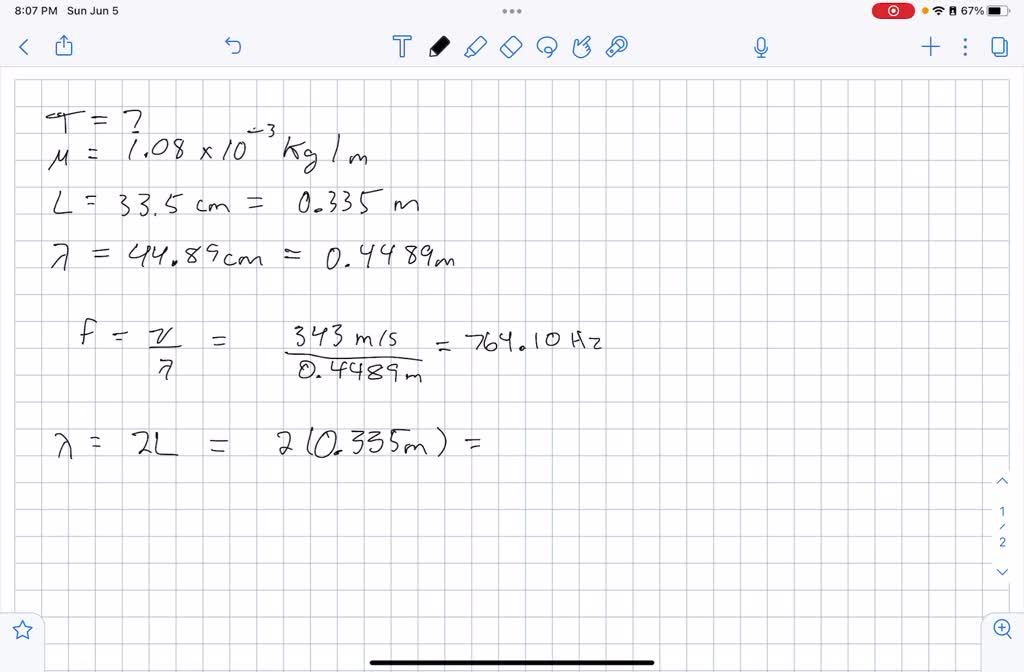 8:07 PM Sun Jun 5
67%
T = ?
μ = 1.08 × 10⁻³ Kg/m
L = 33.5 cm = 0.335 m
λ = 44.89 cm = 0.4489 m
f = v/λ = 343 m/s / 0.4489 m = 764.10 Hz
λ = 2L = 2(0.335m) =
1
/
2